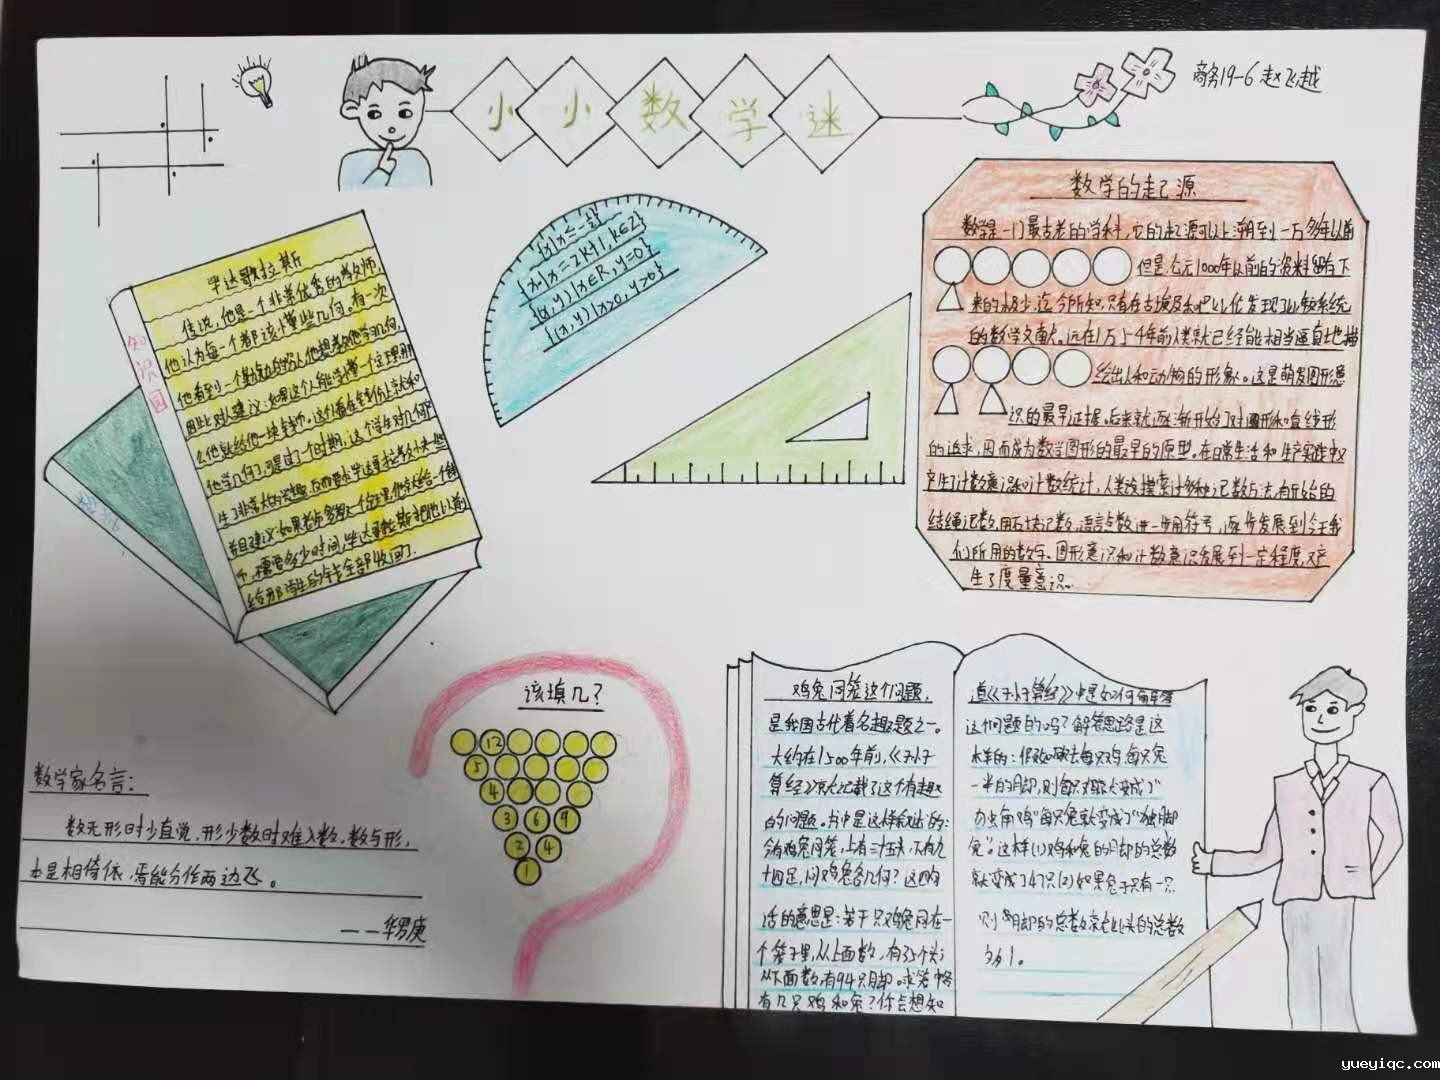 小小数学迷
商务19-6 赵飞越
毕达歌拉斯
传说,他是一个非常优秀的教师,
他认为每一个都该懂些几何。有一次
他看到一个勤勉的穷人,他想教他学习几何,
因此对人建议:如果这个人能学懂一个定理,那
么他就给他一块钱币。这个人看在钱份上就和
他学几何了,可是过了一个时期,这个学生对几何产
生了非常大的兴趣,反而要求毕达哥拉斯教快一些,
并且建议:如果老师多教一个定理,他就给一个钱
币,不需要多少时间,毕达哥拉斯把他以前
给那学生的钱全部收回了.
知识园
{x|x≤-3/2}
{x|x=2k+1,k∈Z}
{(x,y)|x∈R,y=0}
{(x,y)|x>0,y>0}
数学的起源
数学是一门最古老的学科,它的起源可以上溯到一万多年以前
但是,公元1000年以前的资料留存下
来的极少,迄今所知,只有在古埃及和巴比伦发现了比较系统
的数学文献。远在1万5千年前人类就已经能相当逼真地描
绘出人和动物的形象。这是萌发图形意
识的最早证据。后来就逐渐开始了对圆形和直线形
的追求,因而成为数学图形的最早的原型。在日常生活和生产实践中又
产生了计数意识和计数统计,人类摸索过多种记数方法,有开始的
结绳记数,用石块记数,语言点数进一步用符号,逐步发展到今天我
们所用的数字。图形意识和计数意识发展到一定程度,又产
生了度量意识.
该填几?
12
5
4
3 6 9
2 4
1
数学家名言:
数无形时少直觉,形少数时难入数,数与形,
本是相倚依,焉能分作两边飞。
——华罗庚
鸡兔同笼这个问题,
是我国古代著名趣题之一。
大约在1500年前,《孙子
算经》就记载了这个有趣
的问题。书中是这样叙述的:
今有鸡兔同笼,上有三十五头,下有九
十四足,问鸡兔各几何?这四句
话的意思是:若干只鸡兔同在一
个笼子里,从上面数,有35个头;
从下面数,有94只脚。求笼中各
有几只鸡和兔?你会想知
道《孙子算经》中是如何解答
这个问题的吗?解答思路是这
样的:假如砍去每只鸡、每只兔
一半的脚,则每只鸡就变成了"
独角鸡"每只兔就变成了"双脚
兔"。这样(1)鸡和兔的脚的总数
就变成了47只(2)如果兔子只有一只
则脚的总数就比头的总数
多1。
yueyiqc.com